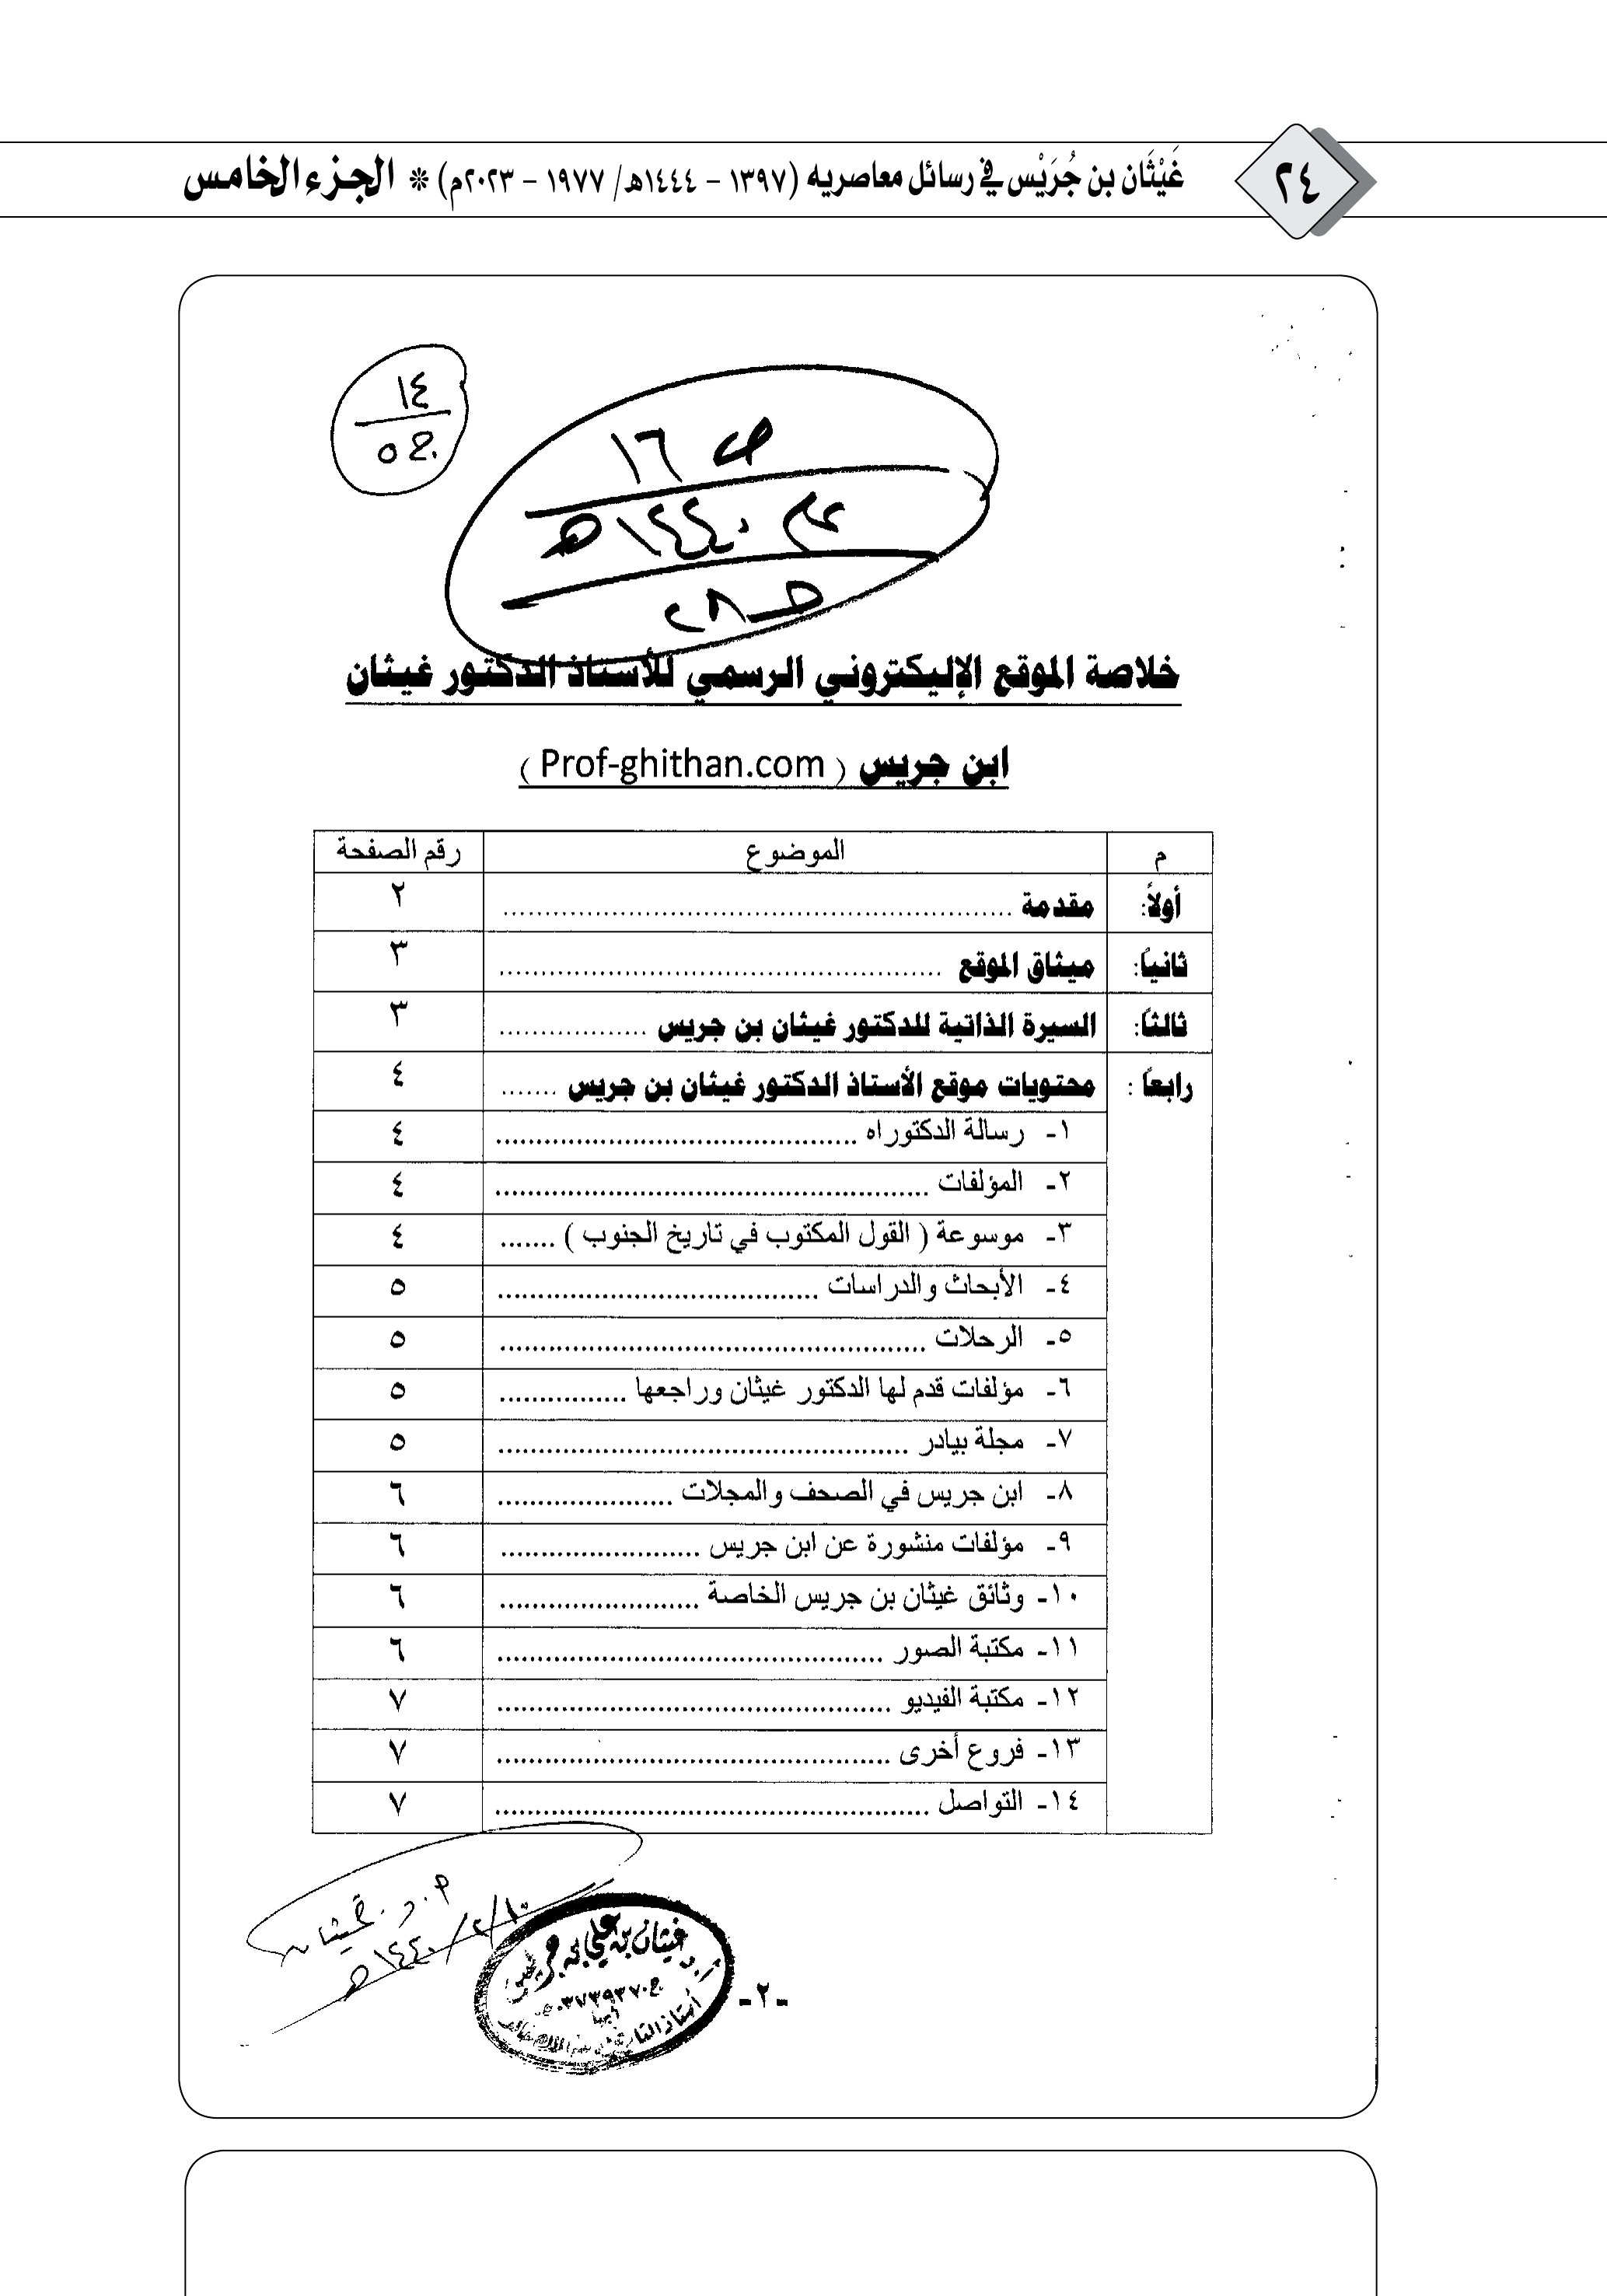 ٢٤
غَيْثَان بن جُرَيْس في رسائل معاصريه (١٣٩٧ - ١٤٤٤هـ/ ١٩٧٧ - ٢٠٢٣م) * الجزء الخامس
١٤
ص ١٦
عام ١٤٤٠هـ
خلاصة الموقع الإليكتروني الرسمي للأستاذ الدكتور غيثان
ابن جريس ( Prof-ghithan.com )
م الموضوع رقم الصفحة
أولاً: مقدمة ............ ٢
ثانياً: ميثاق الموقع ............ ٣
ثالثاً: السيرة الذاتية للدكتور غيثان بن جريس ............ ٣
رابعاً : محتويات موقع الأستاذ الدكتور غيثان بن جريس ....... ٤
١- رسالة الدكتوراه ............ ٤
٢- المؤلفات ............ ٤
٣- موسوعة ( القول المكتوب في تاريخ الجنوب ) ....... ٤
٤- الأبحاث والدراسات ............ ٥
٥- الرحلات ............ ٥
٦- مؤلفات قدم لها الدكتور غيثان وراجعها ............ ٥
٧- مجلة بيادر ............ ٥
٨- ابن جريس في الصحف والمجلات ............ ٦
٩- مؤلفات منشورة عن ابن جريس ............ ٦
١٠- وثائق غيثان بن جريس الخاصة ............ ٦
١١- مكتبة الصور ............ ٦
١٢- مكتبة الفيديو ............ ٧
١٣- فروع أخرى ............ ٧
١٤- التواصل ............ ٧
أ.د. غيثان
١٤٤٠/٢/١٠هـ
أ.د غيثان بن علي بن جريس
أبها
أستاذ التاريخ
-٢-